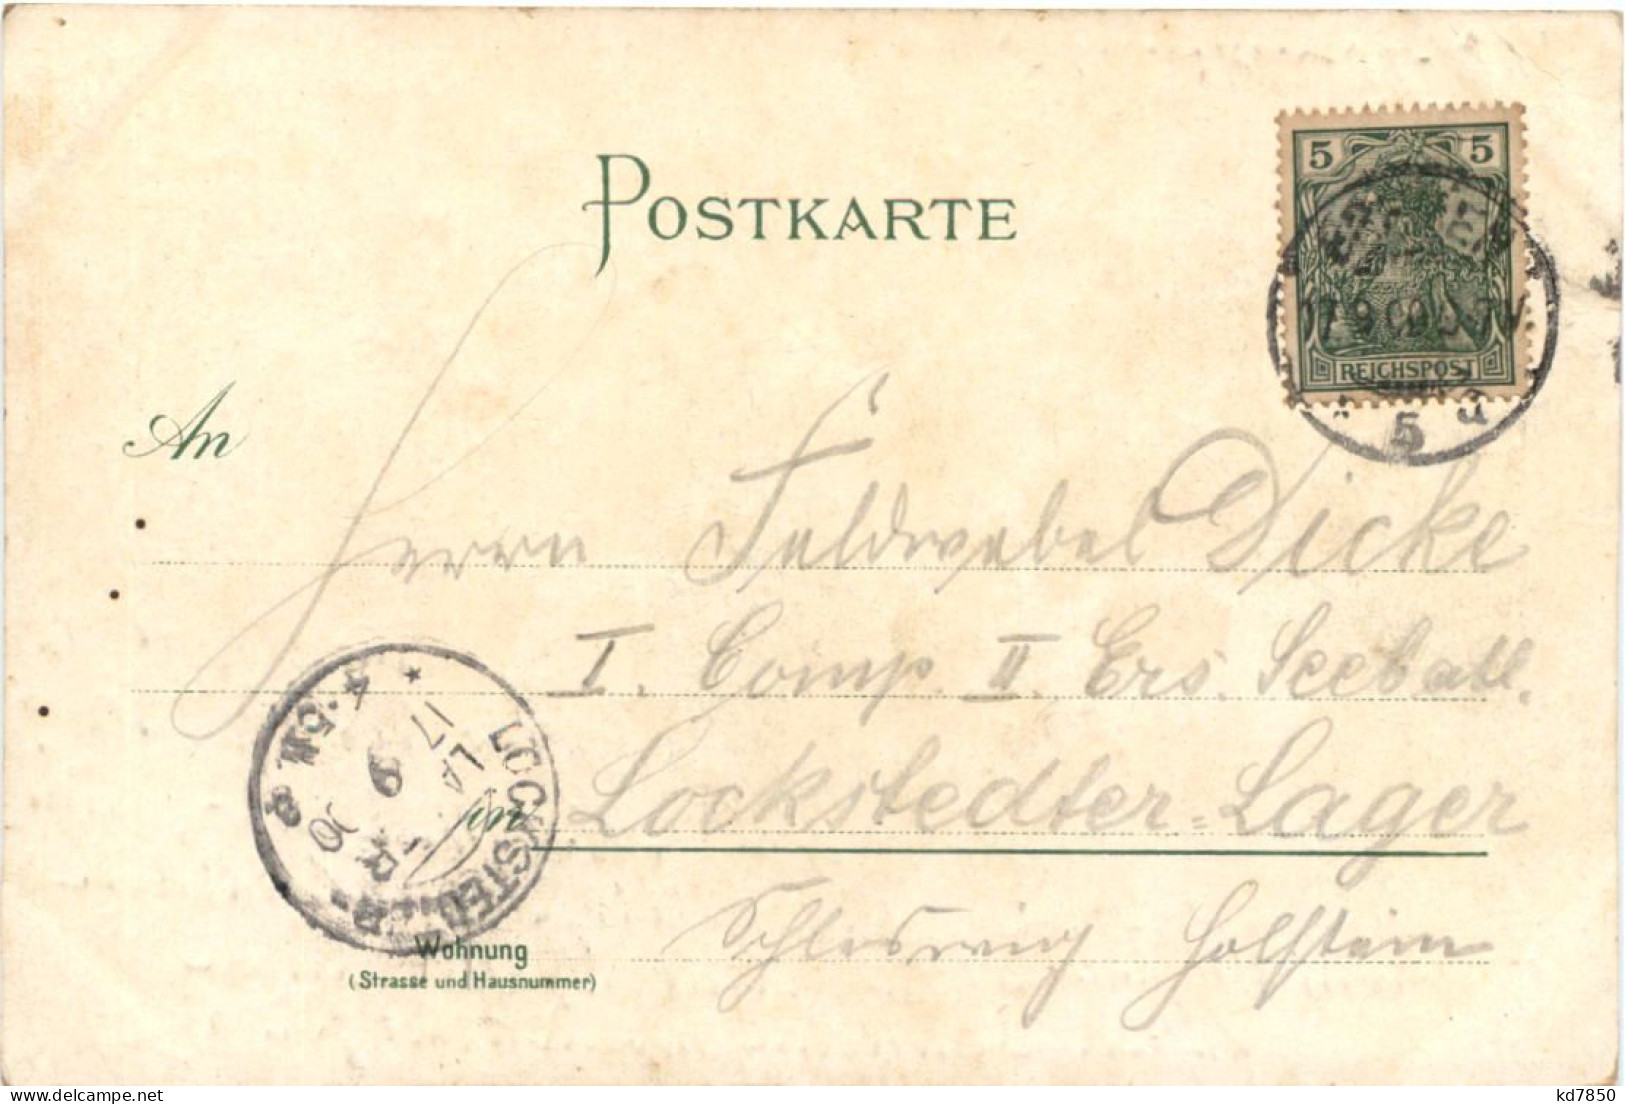 POSTKARTE
5 5
REICHSPOST
17.9.00 7V.
* 5 d
An
Herrn Feldwebel Dicke
I. Comp. II Ers. Seebatl.
in Lockstedter-Lager
Schleswig Holstein
Wohnung
(Strasse und Hausnummer)
LOCKSTEDTER
LAGER
17 9 00
4-5N.
kd7850